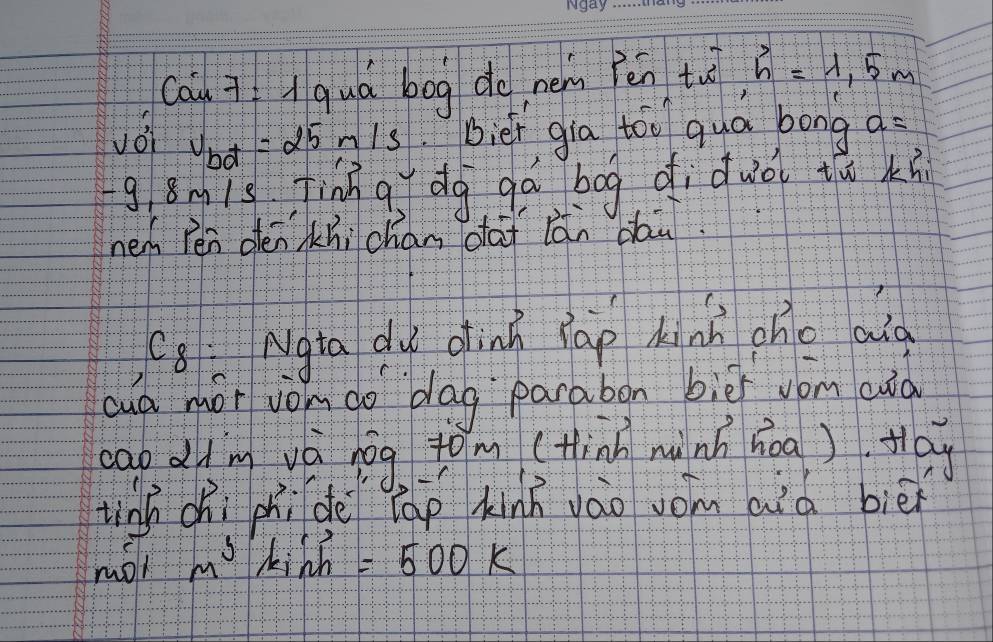 Ngày ......tháng ......
Câu 7: 1 quả bóg đc ném lên từ h = 1,5m
với vbđ = 25 m/s. Biết gia tốc quả bóng a=
-9,8m/s. Tính qʳ đg qả bóg đi được từ khi
ném lên đến khi chạm đất lần đầu.
C8: Ngta dự định lắp kính cho cửa
của một vòm có dạg parabon biết vòm cửa
cao 21m và rộg 70m (Hình minh hoạ). Hãy
tính chi phí để lắp kính vào vòm cửa biết
mỗi m³ kính = 500 K